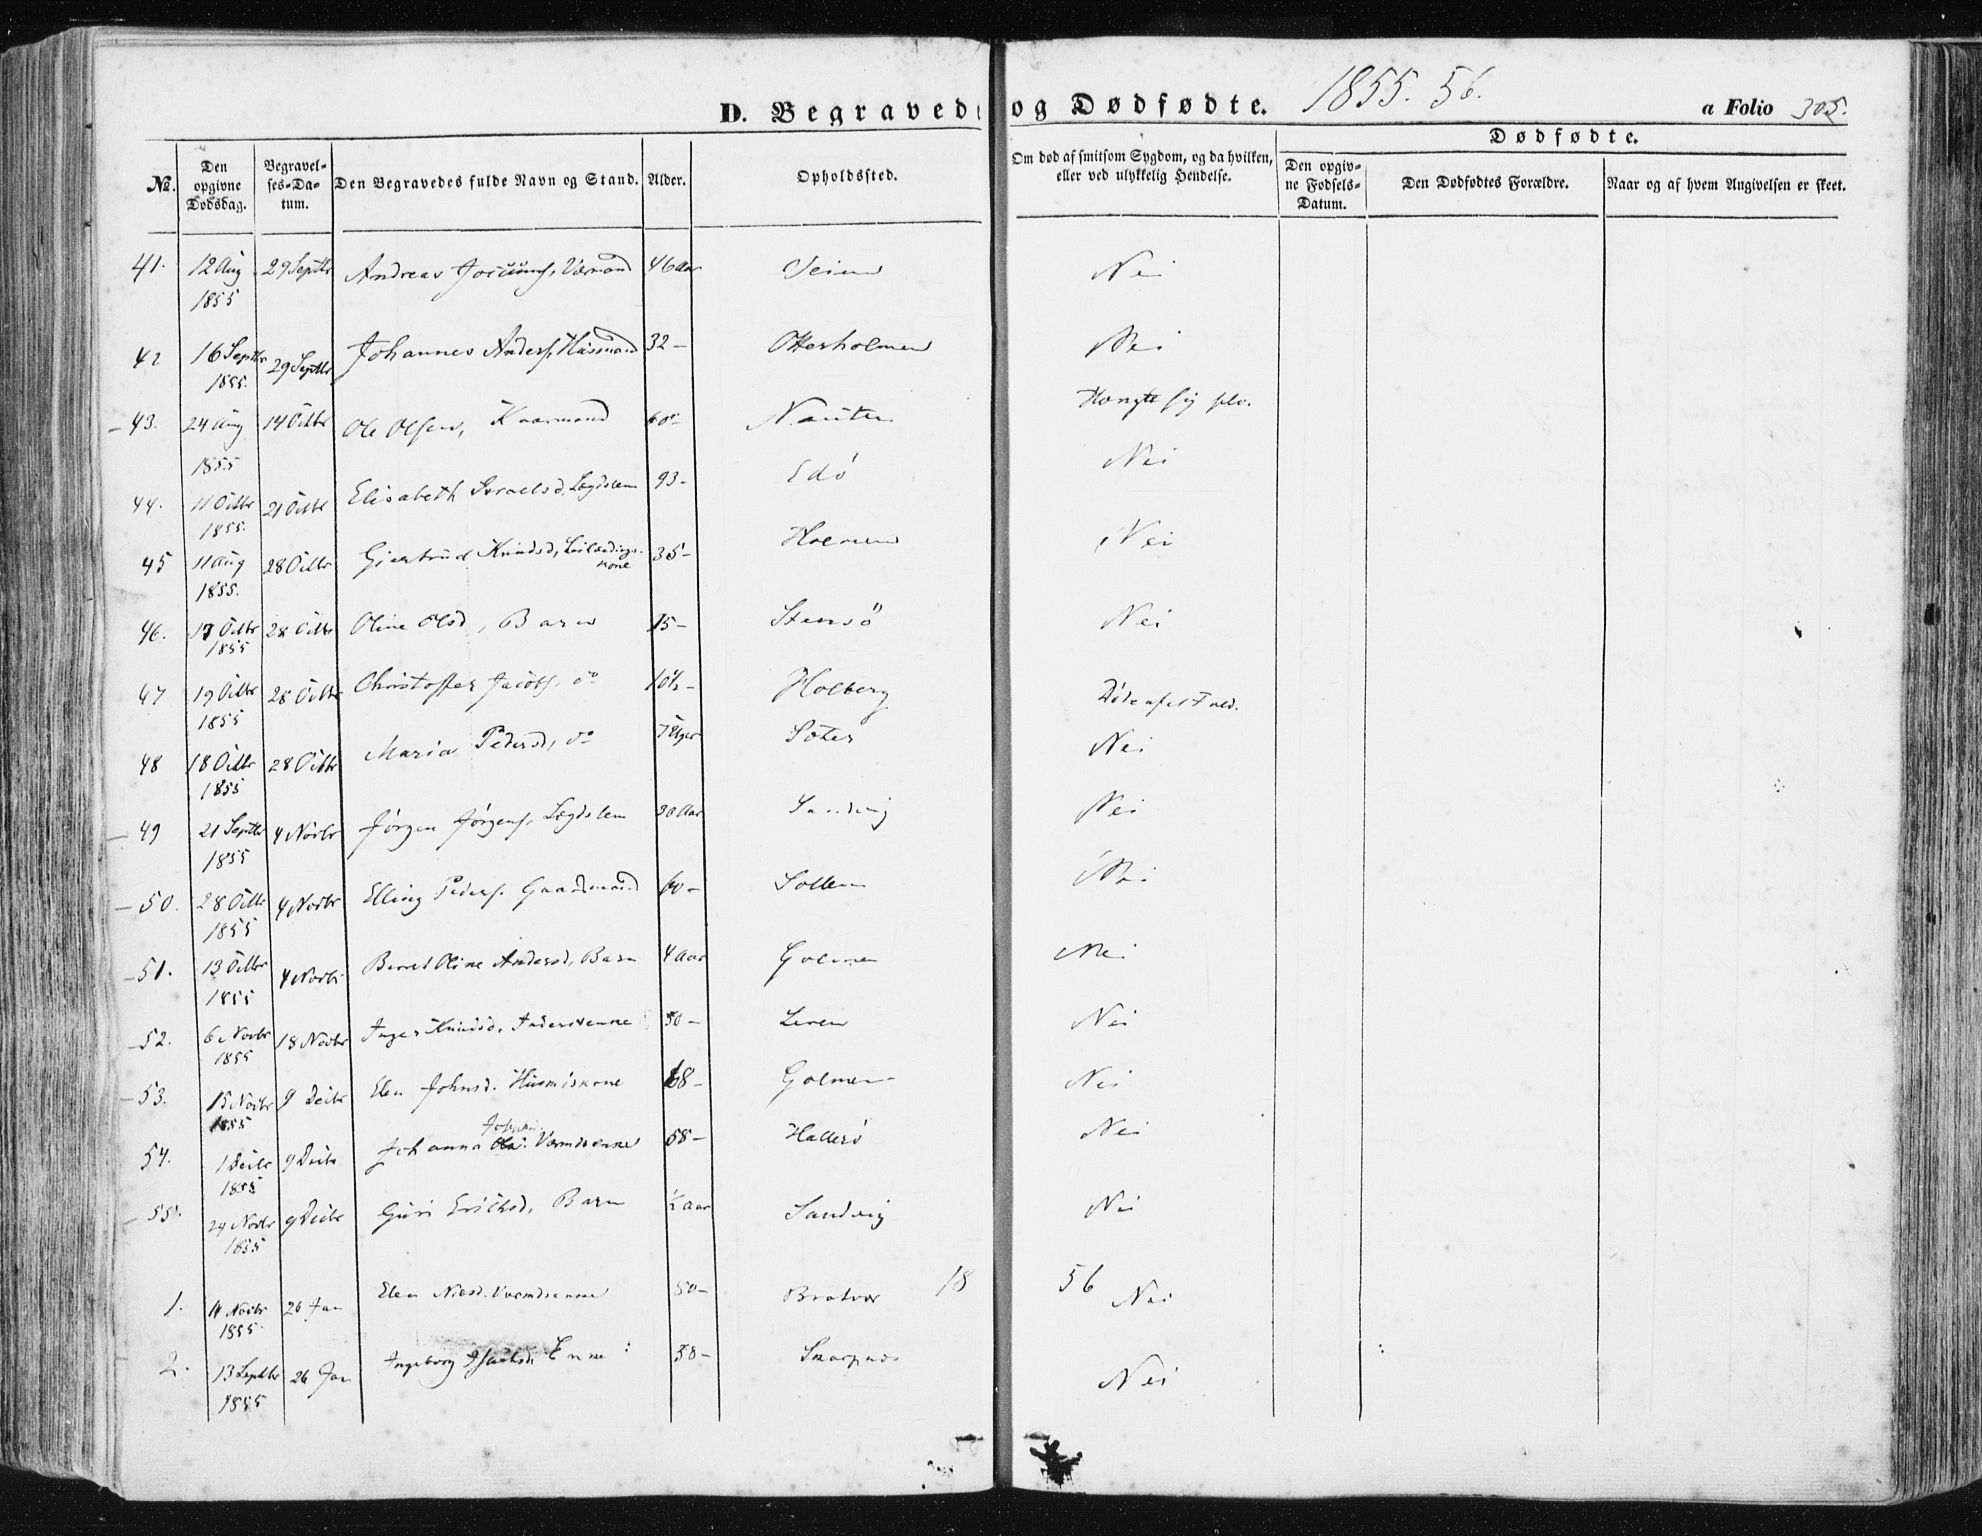 D. Begravede og Dødfødte. 1855. 56. a Folio 305.
Dødfødte.
No. Den opgivne Dødsdag. Begravelses-Datum. Den Begravedes fulde Navn og Stand. Alder. Opholdssted. Om død af smitsom Sygdom, og da hvilken, eller ved ulykkelig Hendelse. Den opgivne Fødsels-Datum. Den Dødfødtes Forældre. Naar og af hvem Angivelsen er skeet.
41. 12 Aug 1855 29 Septbr Andreas 46 Aar Veien Nei
42 16 Septbr 1855. 29 Septbr Johannes Anders. Husmand 32 - Otterholmen Nei
43. 24 Aug 1855 14 Octbr Ole Olsen, Kaarmand 60 - Hængte sig selv.
44. 11 Octbr 1855. 21 Octbr Elisabeth Israelsd, Lægdslem 93 - Edø Nei
45 11 Aug 1855. 28 Octbr Giertrud Knudsd, Leilændingskone 35 - Holmen Nei
46. 17 Octbr 1855 28 Octbr Oline Olsd, Barn 15 - Stensø Nei
47 19 Octbr 1855 28 Octbr Christoffer Jacobs. do 10½ - Holberg
48 18 Octbr 1855 28 Octbr Maria Pedersd, do 7 Uger Soter Nei
49 21 Septbr 1855 4 Novbr Jørgen Jørgens, Lægdslem 30 Aar Sandvig Nei
50. 28 Octbr 1855 4 Novbr Elling Peders. Gaardmand 60 - Sollem Nei
51. 13 Octbr 1855 4 Novbr Beret Oline Andersd, Barn 4 Aar Golmen Nei
52. 6 Novbr 1855 18 Novbr Inger Knudsd, 50 - Leren Nei
53. 15 Novbr 1855 9 Decbr Elen Johnsd. Husmdskone 68 - Golmen Nei
54. 1 Decbr 1855 9 Decbr Johanna 58 - Hallesø Nei
55. 24 Novbr 1855 9 Decbr Guri Erichsd, Barn ½ Aar Sandvig Nei
18 56
1. 11 Novbr 1855. 26 Jan Elen Nilsd. 50 - Bratvær Nei
2. 13 Septbr 1855 26 Jan Ingeborg Enke 58 - Skarpnes Nei